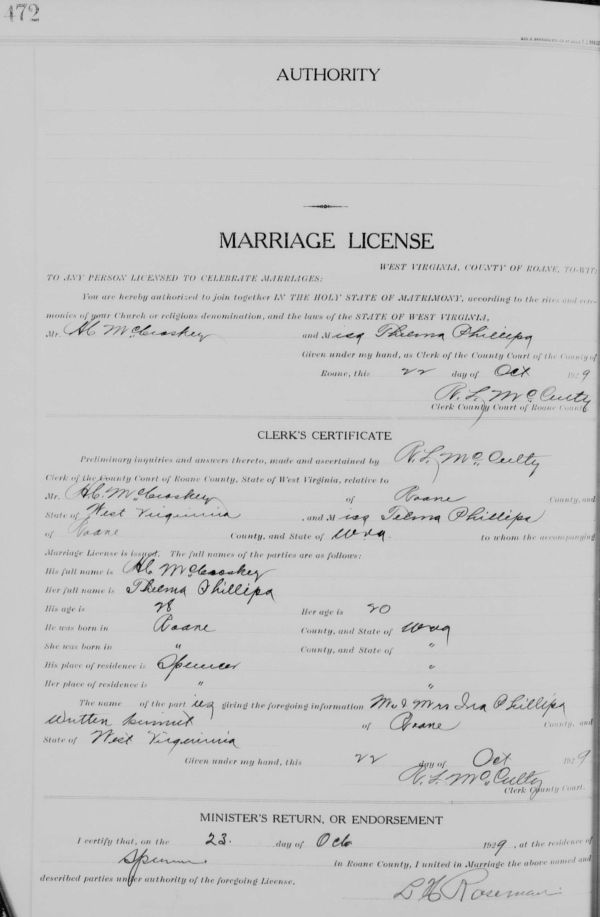 472
AUTHORITY
MARRIAGE LICENSE
WEST VIRGINIA, COUNTY OF ROANE, TO-WIT:
TO ANY PERSON LICENSED TO CELEBRATE MARRIAGES:
You are hereby authorized to join together IN THE HOLY STATE OF MATRIMONY, according to the rites and cere-
monies of your Church or religious denomination, and the laws of the STATE OF WEST VIRGINIA,
Mr. H C McCroskey and Miss Thelma Phillips
Given under my hand, as Clerk of the County Court of the County of
Roane, this 22 day of Oct 1929
R. L. McCulty
Clerk County Court of Roane County
CLERK'S CERTIFICATE
Preliminary inquiries and answers thereto, made and ascertained by R. L. McCulty
Clerk of the County Court of Roane County, State of West Virginia, relative to
Mr. H. C. McCroskey of Roane County, and
State of West Virginia, and Miss Telma Phillips
of Roane County, and State of Wva. to whom the accompanying
Marriage License is issued. The full names of the parties are as follows:
His full name is H C McCroskey
Her full name is Thelma Phillips
His age is 28 Her age is 20
He was born in Roane County, and State of Wva
She was born in " County, and State of "
His place of residence is Spencer "
Her place of residence is " "
The name of the parties giving the foregoing information Mr & Mrs Ira Phillips
written permit of Roane County, and
State of West Virginia
Given under my hand, this 22 day of Oct 1929
R. L. McCulty
Clerk County Court.
MINISTER'S RETURN, OR ENDORSEMENT
I certify that, on the 23. day of Oct 1929., at the residence of
Spencer in Roane County, I united in Marriage the above named and
described parties under authority of the foregoing License.
L H Roseman